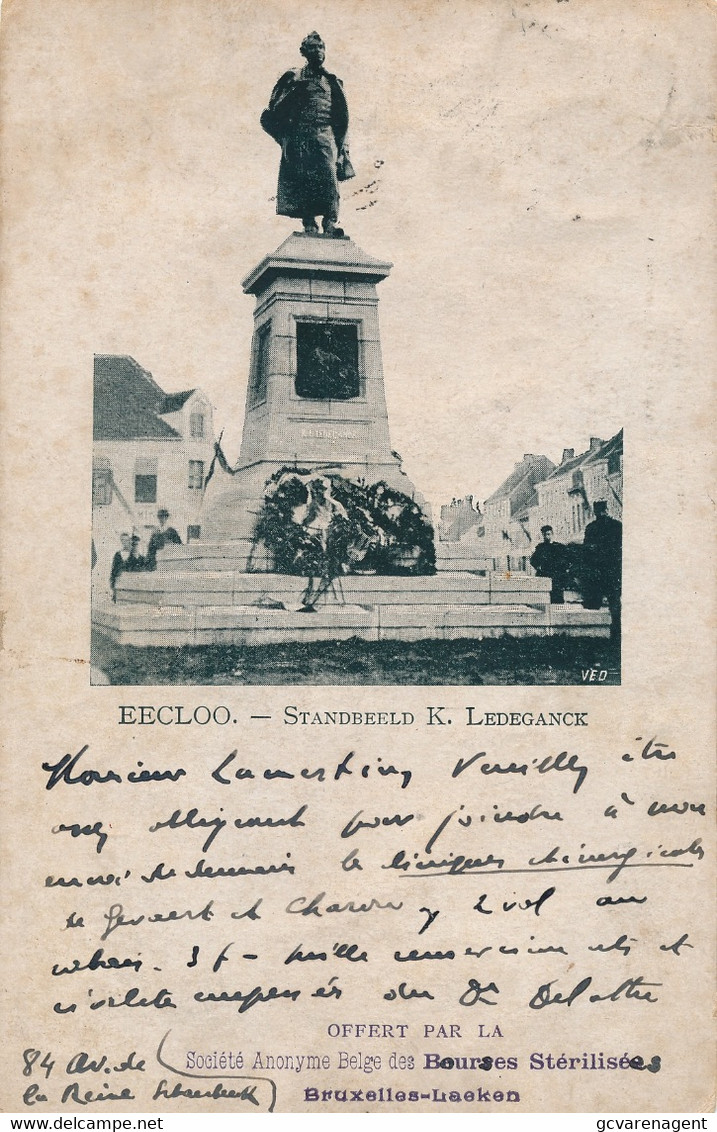 VED
EECLOO. — STANDBEELD K. LEDEGANCK
Monsieur Lamertin, Veuillez être
assez obligeant pour joindre à mon
envoi de demain la cliniques chirurgicales
de Gevaert et 2 vol au
rabais. 3 f - mille remerciments et
civilités empressées du Dr Delattre
OFFERT PAR LA
84 Av. de Société Anonyme Belge des Bourses Stérilisées
la Reine Schaerbeek Bruxelles-Laeken
gcvarenagent